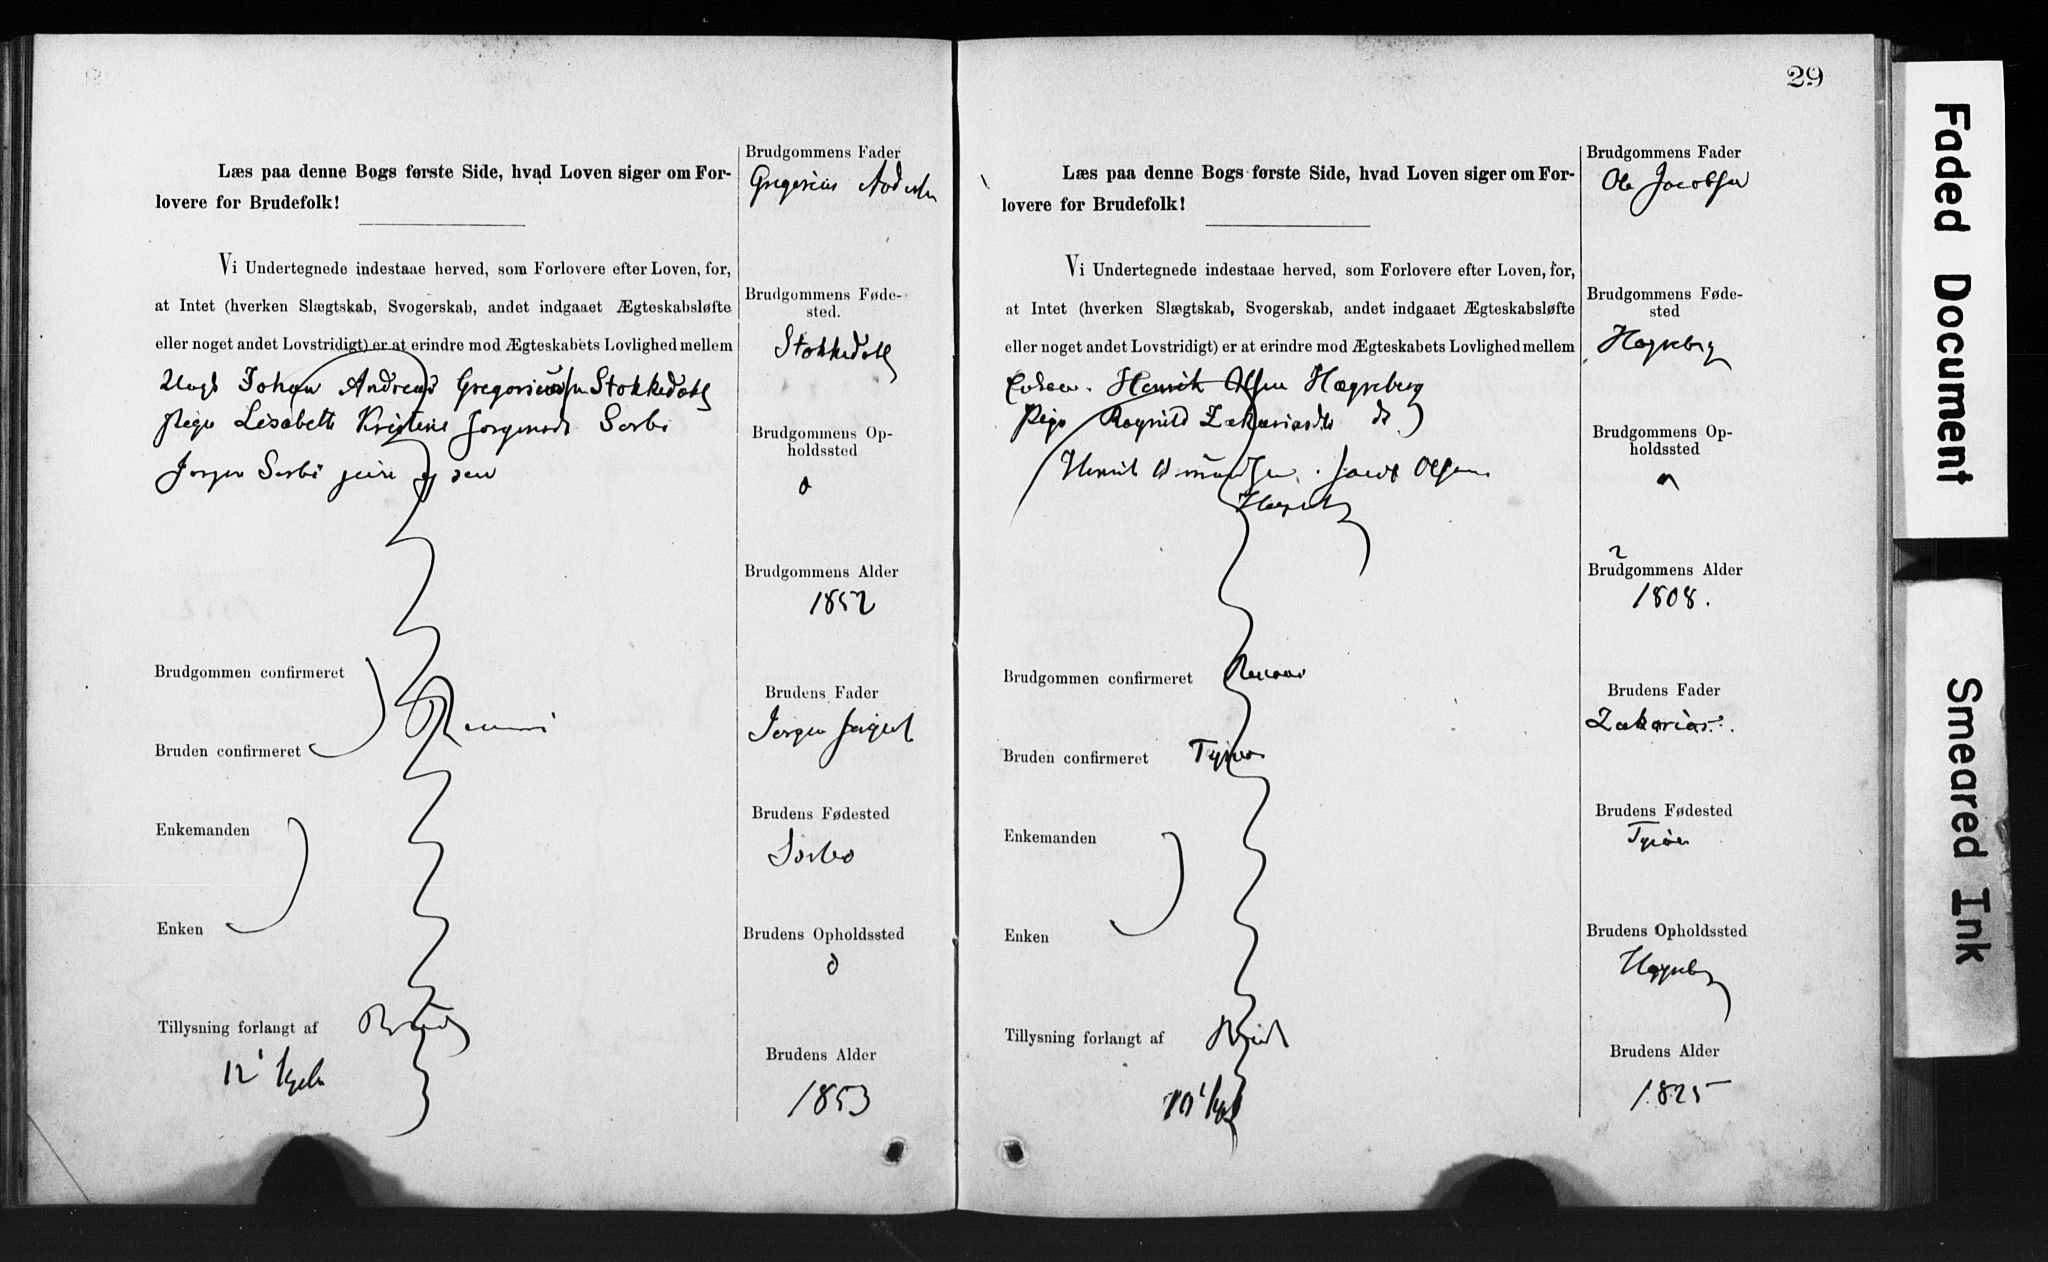 Læs paa denne Bogs første Side, hvad Loven siger om For-
lovere for Brudefolk!
Vi Undertegnede indestaae herved, som Forlovere efter Loven, for,
at Intet (hverken Slægtskab, Svogerskab, andet indgaaet Ægteskabsløfte
eller noget andet Lovstridigt) er at erindre mod Ægteskabets Lovlighed mellem
Ungk Johan Andreas Gregoriussen Stokkedahl
Pige Lisabeth Kristine Jørgensd Sørbø
Jørgen Sørbø
Brudgommen confirmeret
Bruden confirmeret
Enkemanden
Enken
Tillysning forlangt af
12
Brudgommens Fader
Gregorius
Brudgommens Føde-
sted.
Stokkedahl
Brudgommens Op-
holdssted
Brudgommens Alder
1852
Brudens Fader
Jørgen
Brudens Fødested
Sørbø
Brudens Opholdssted
Brudens Alder
1853
29
Læs paa denne Bogs første Side, hvad Loven siger om For-
lovere for Brudefolk!
Vi Undertegnede indestaae herved, som Forlovere efter Loven, for,
at Intet (hverken Slægtskab, Svogerskab, andet indgaaet Ægteskabsløfte
eller noget andet Lovstridigt) er at erindre mod Ægteskabets Lovlighed mellem
Henrik Olsen Hægreberg
Pige Ragnild Zakariasd
Henrik Jacob Olsen
Brudgommen confirmeret
Bruden confirmeret
Enkemanden
Enken
Tillysning forlangt af
Brudgommens Fader
Ole Jacobsen
Brudgommens Føde-
sted
Hægreberg
Brudgommens Op-
holdssted
Brudgommens Alder
1808.
Brudens Fader
Zakarias
Brudens Fødested
Brudens Opholdssted
Hægreberg
Brudens Alder
1825
Faded Document
Smeared Ink